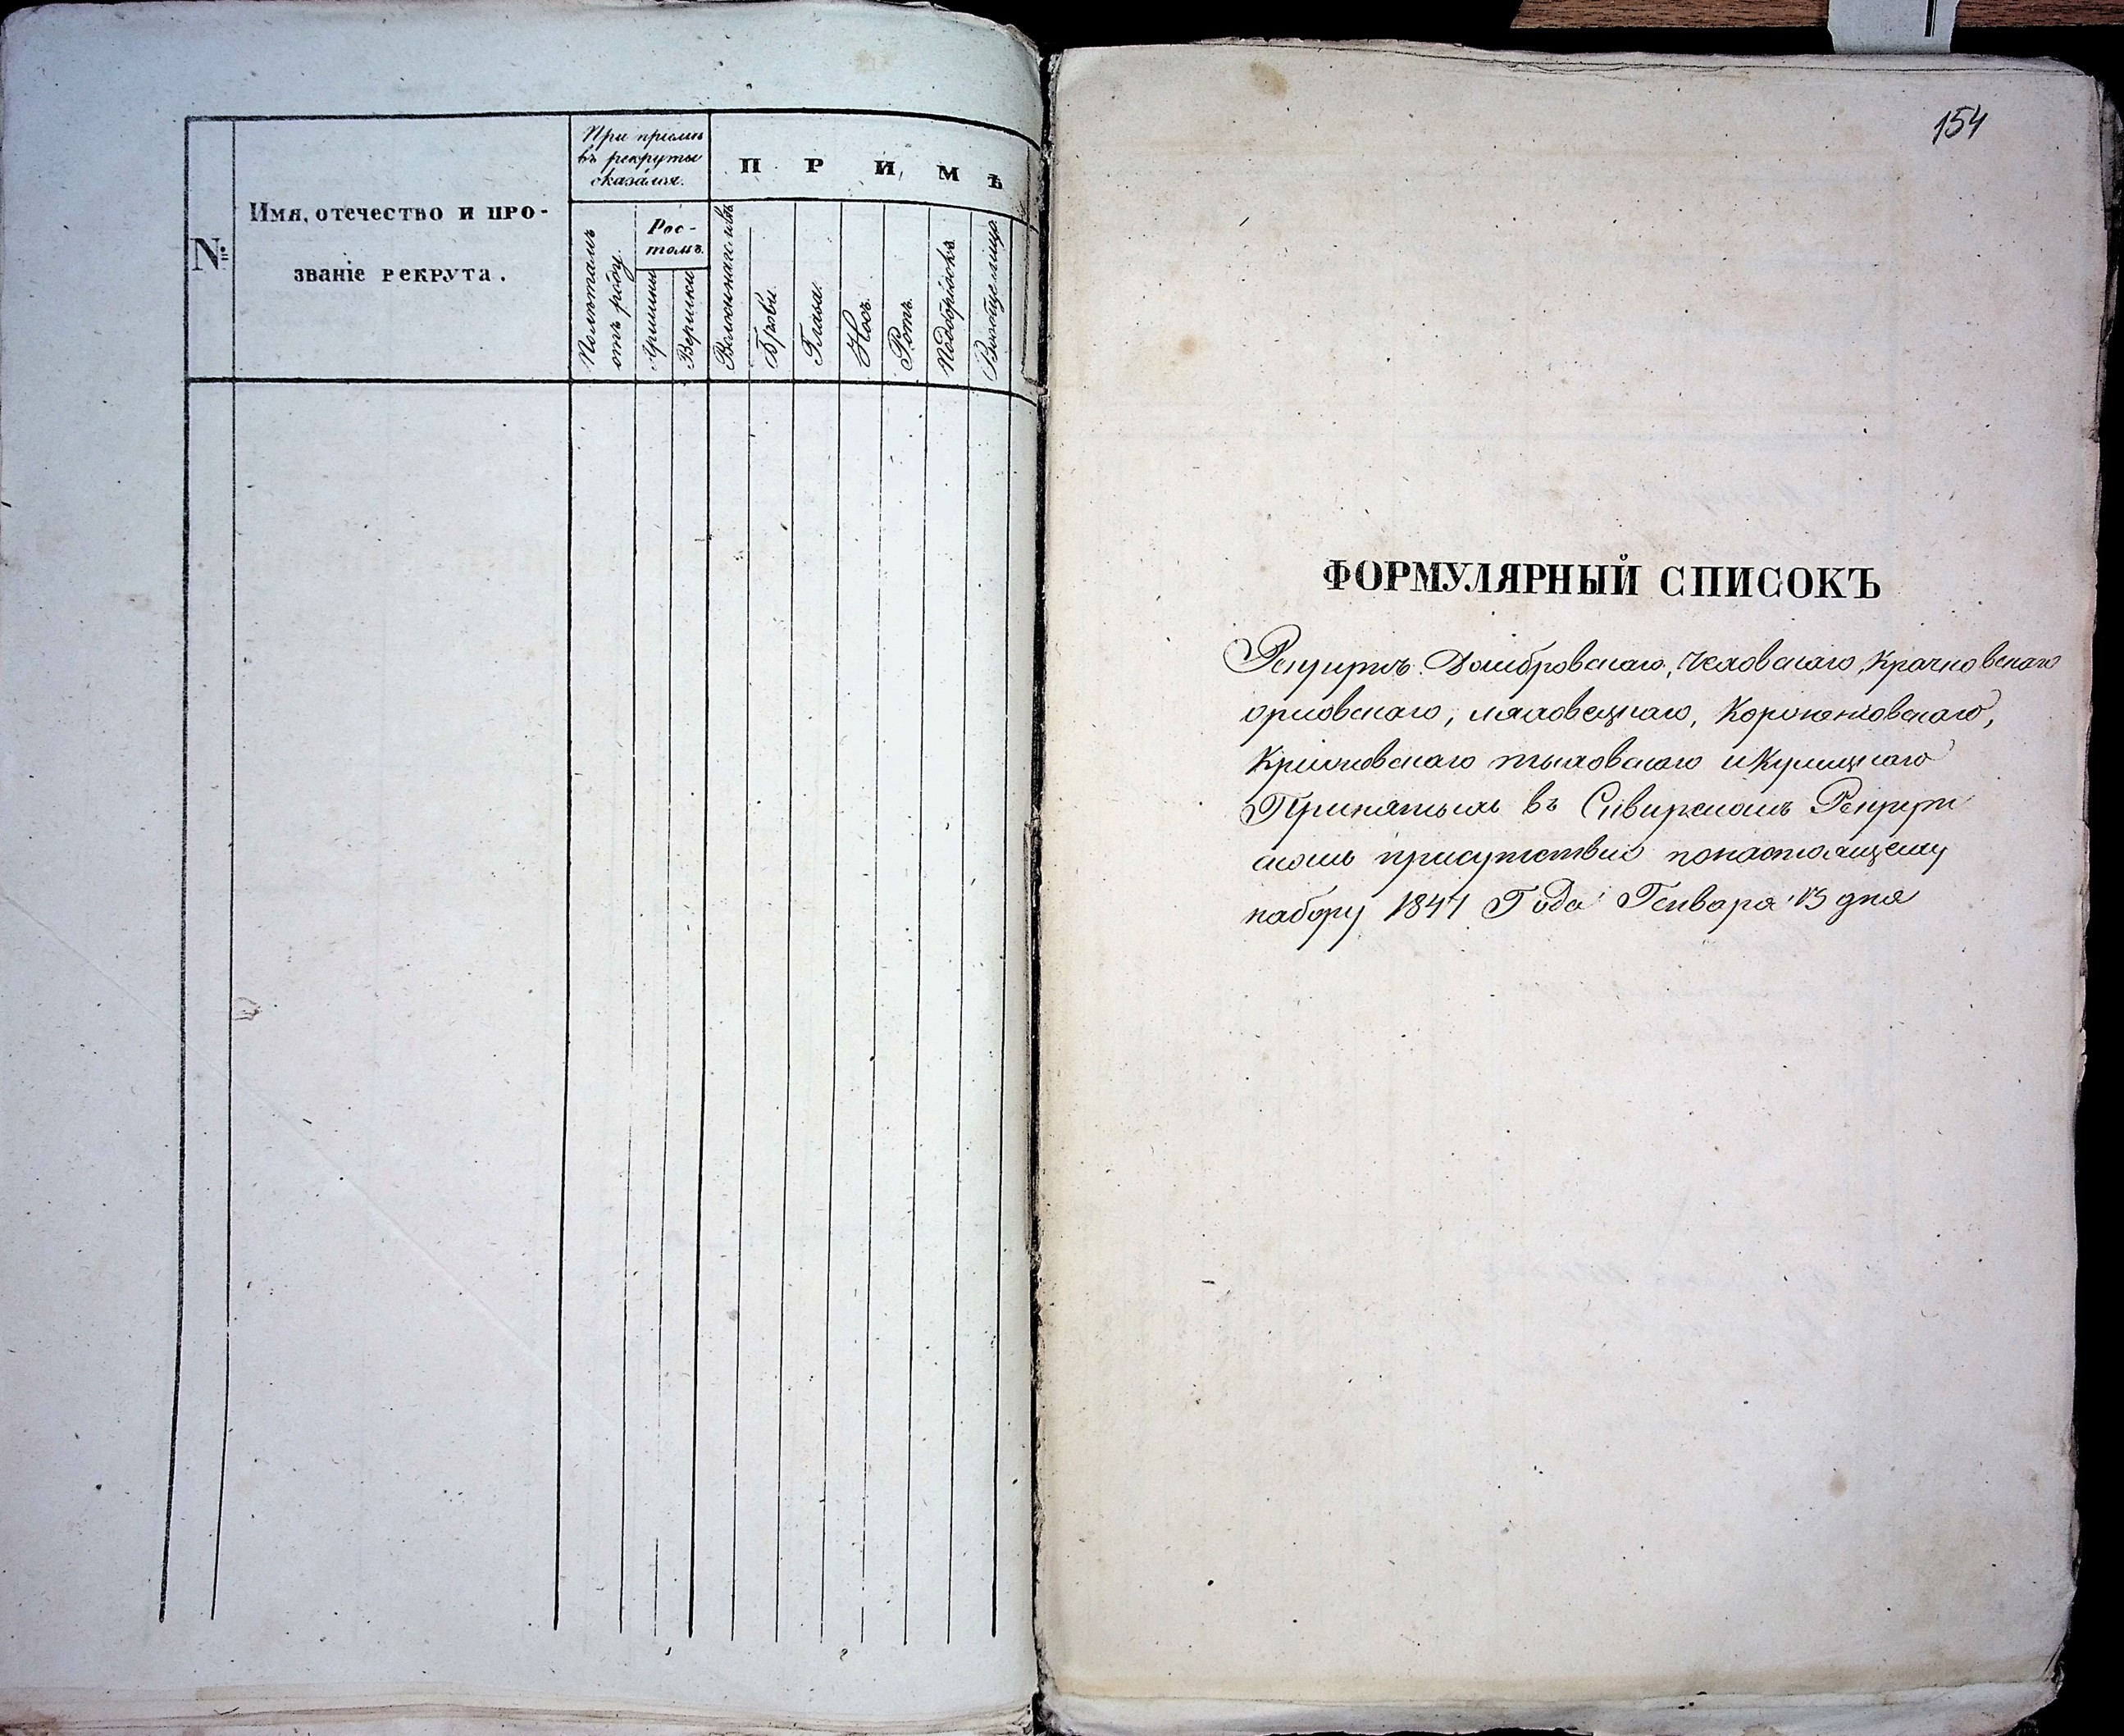 №
Имя, отечество и про-
званіе рекрута.
При пріемѣ
въ рекруты
оказался.
По лѣтамъ
отъ роду.
Рос-
томъ.
Аршины
Вершки
П Р И М Ѣ
Волосы на головѣ
Брови.
Глаза.
Носъ.
Ротъ.
Подбородокъ
Вообще лицо
154
ФОРМУЛЯРНЫЙ СПИСОКЪ
Рекрутъ Домбровскаго, Чеховскаго, Крачковскаго
орловскаго, ляховецкаго,
и Кулицкаго
Принятымъ въ Сивирскомъ Рекрут
скомъ присутствіи понастоящему
набору 1841 Года Генваря 15 дня